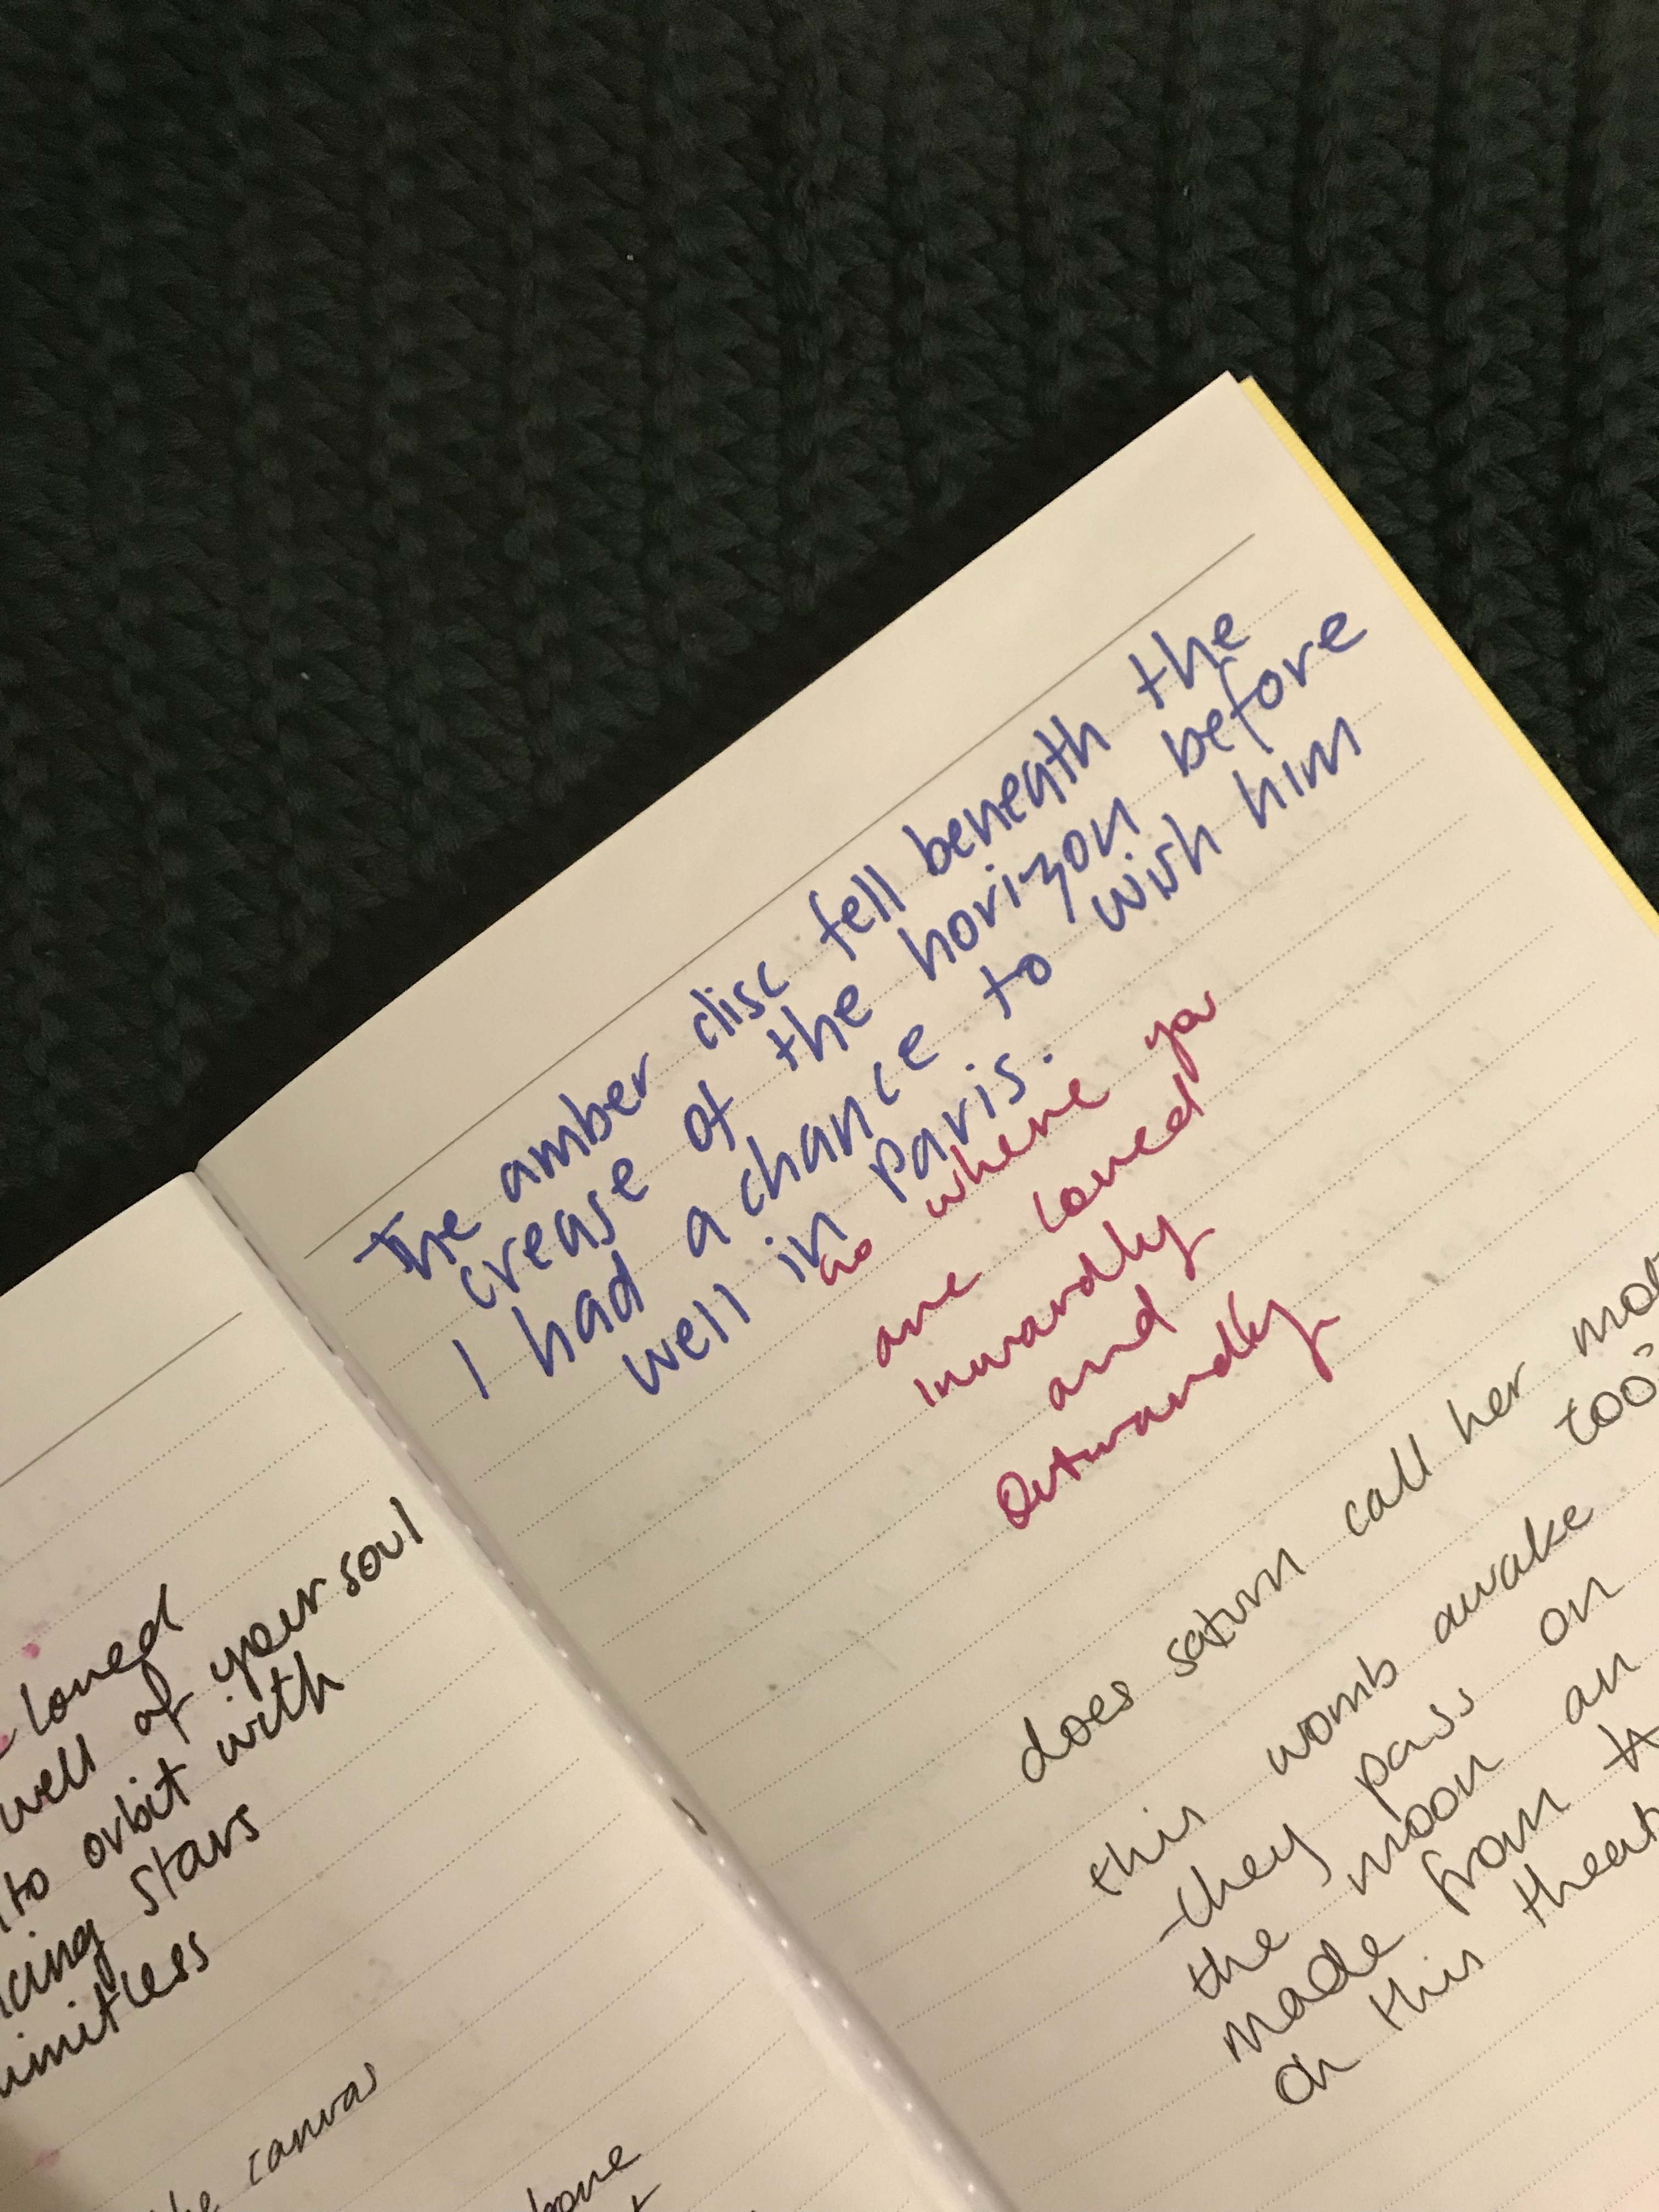 loved
well of your soul
to orbit with
stars
the canvas
The amber disc fell beneath the
crease of the horizon before
I had a chance to wish him
well in paris.
go where you
are loved
inwardly
and
Outwardly
does saturn call her
too?
this womb awake
they pass on
the moon an
made from
on this